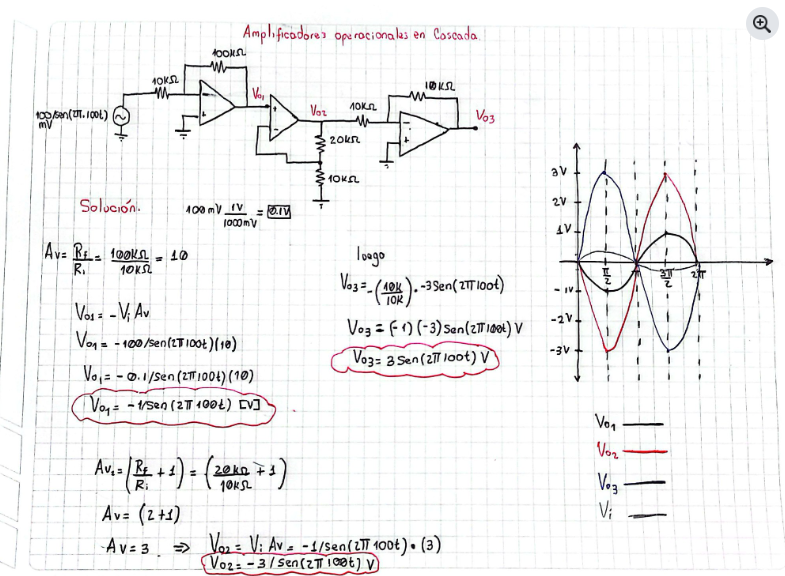 Amplificadores operacionales en Cascada.
100kΩ
10kΩ
100/sen(2π.100t)
mV
Vo1
Vo2
20kΩ
10kΩ
10kΩ
10kΩ
Vo3
Solución.
100mV 1V/1000mV = 0.1V
Av= Rf/Ri = 100KΩ/10KΩ = 10
Vo1 = -Vi Av
Vo1 = -100/sen(2π100t)(10)
Vo1 = -0.1/sen(2π100t)(10)
Vo1 = -1/sen(2π100t) [V]
Av2=(Rf/Ri + 1) = (20kΩ/10kΩ + 1)
Av= (2+1)
Av=3 ⇒ Vo2 = Vi Av = -1/sen(2π100t)•(3)
Vo2= -3/sen(2π100t) V
luego
Vo3=-(10k/10k).-3Sen(2π100t)
Vo3 = (-1)(-3)Sen(2π100t) V
Vo3= 3Sen(2π100t) V
3V
2V
1V
-1V
-2V
-3V
π/2
π
3π/2
2π
Vo1
Vo2
Vo3
Vi